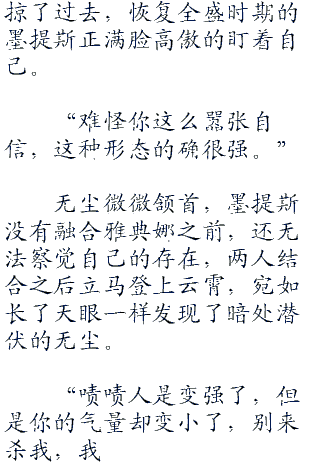 掠了过去，恢复全盛时期的
墨提斯正满脸高傲的盯着自
己。
“难怪你这么嚣张自
信，这种形态的确很强。”
无尘微微颔首，墨提斯
没有融合雅典娜之前，还无
法察觉自己的存在，两人结
合之后立马登上云霄，宛如
长了天眼一样发现了暗处潜
伏的无尘。
“啧啧人是变强了，但
是你的气量却变小了，别来
杀我，我